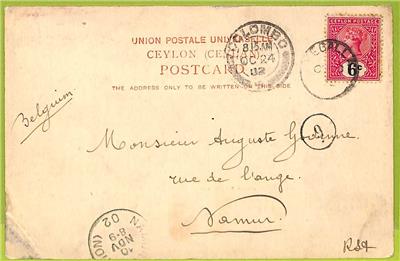 UNION POSTALE UNIVERSELLE
CEYLON
POSTCARD
THE ADDRESS ONLY TO BE WRITTEN ON THIS
COLOMBO
8.15AM
OC 24
02
CEYLON POSTAGE
6c
Belgium
Monsieur Auguste
rue de l'ange.
Namur.
10
NOV
8-9
02